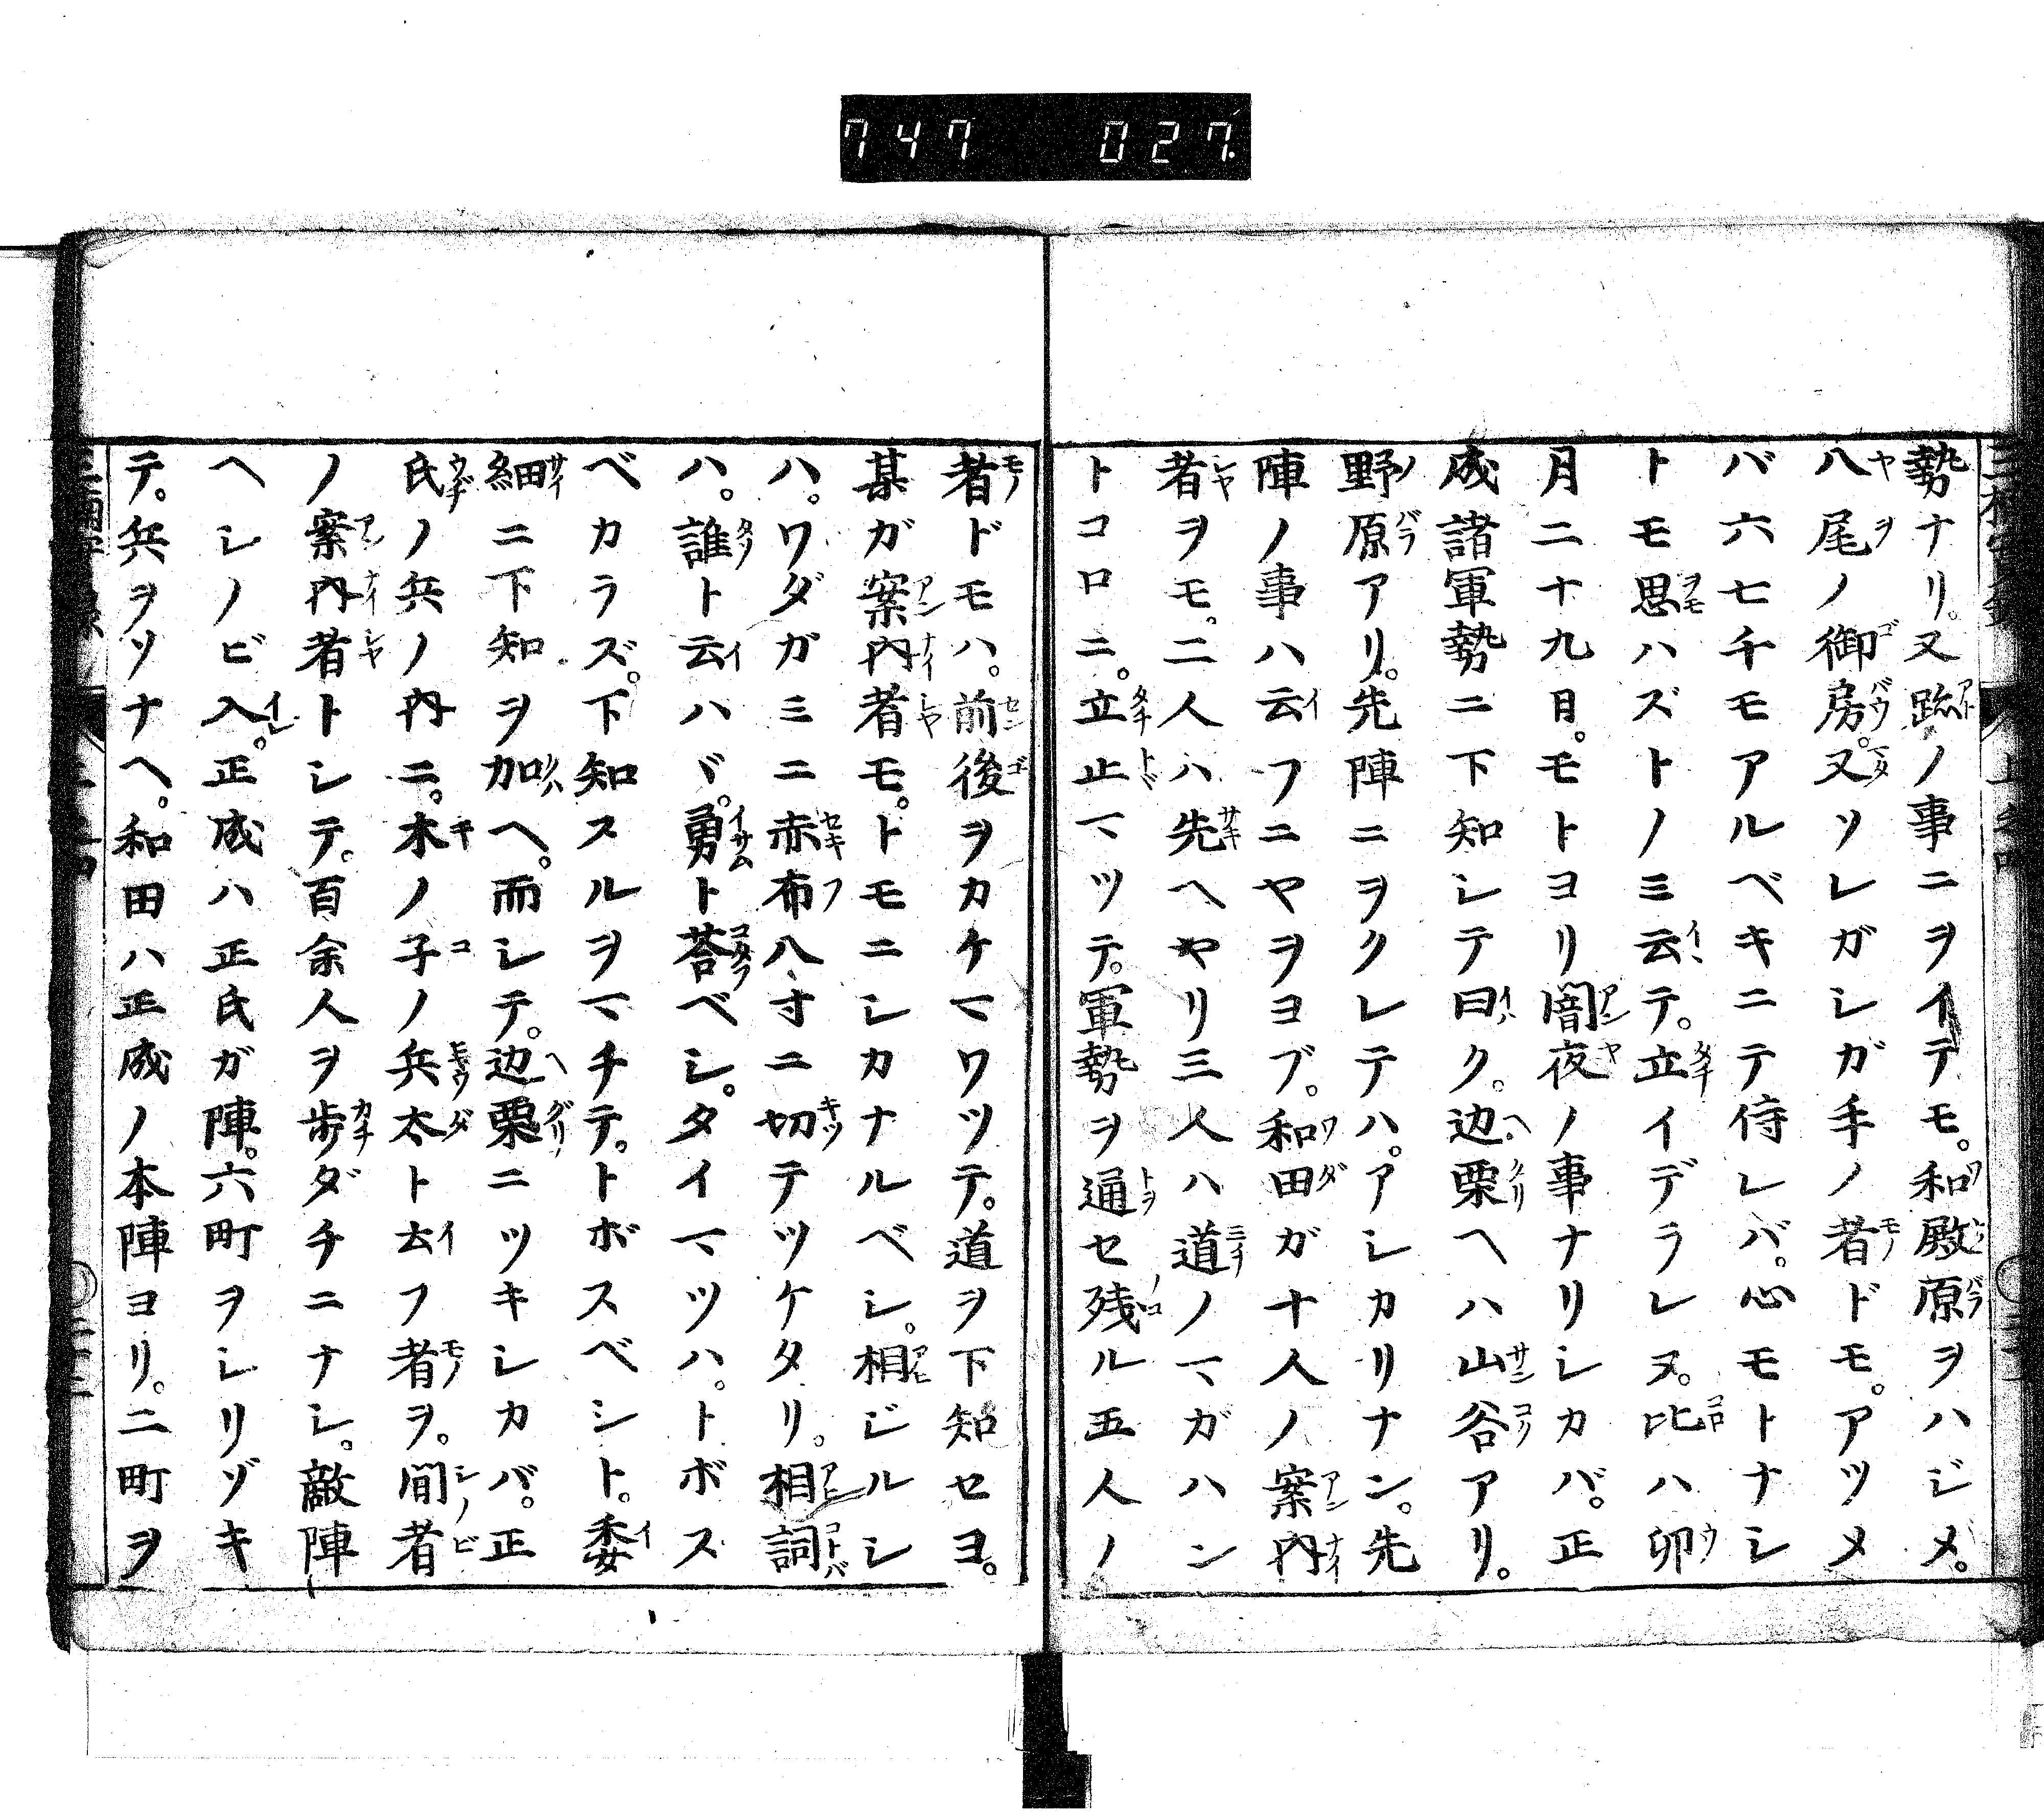 747 027
勢ナリ。又跡ノ事ニヲイテモ。和殿原ヲハジメ。
八尾ノ御房。又ソレガシガ手ノ者ドモ。アツメ
バ六七千モアルベキニテ侍レバ。心モトナシ
トモ思ハズトノミ云テ。立イデラレヌ。比ハ卯
月二十九日。モトヨリ闇夜ノ事ナリシカバ。正
成諸軍勢ニ下知シテ曰ク。辺栗ヘハ山谷アリ。
野原アリ。先陣ニヲクレテハ。アシカリナン。先
陣ノ事ハ云フニヤヲヨブ。和田ガ十人ノ案内
者ヲモ。二人ハ先ヘヤリ三人ハ道ノマガハン
トコロニ。立止マツテ。軍勢ヲ通セ残ル五人ノ
者ドモハ。前後ヲカケマワツテ。道ヲ下知セヨ。
某ガ案内者モ。トモニシカナルベシ。相ジルシ
ハ。ワダガミニ赤布八寸ニ切テツケタリ。相詞
ハ。誰ト云ハヾ。勇ト荅ベシ。タイマツハ。トボス
ベカラズ。下知スルヲマチテ。トボスベシト。委
細ニ下知ヲ加ヘ。而シテ。辺栗ニツキシカバ。正
氏ノ兵ノ内ニ。木ノ子ノ兵太ト云フ者ヲ。間者
ノ案内者トシテ。百余人ヲ歩ダチニナシ。敵陣
ヘシノビ入。正成ハ正氏ガ陣。六町ヲシリゾキ
テ。兵ヲソナヘ。和田ハ正成ノ本陣ヨリ。二町ヲ